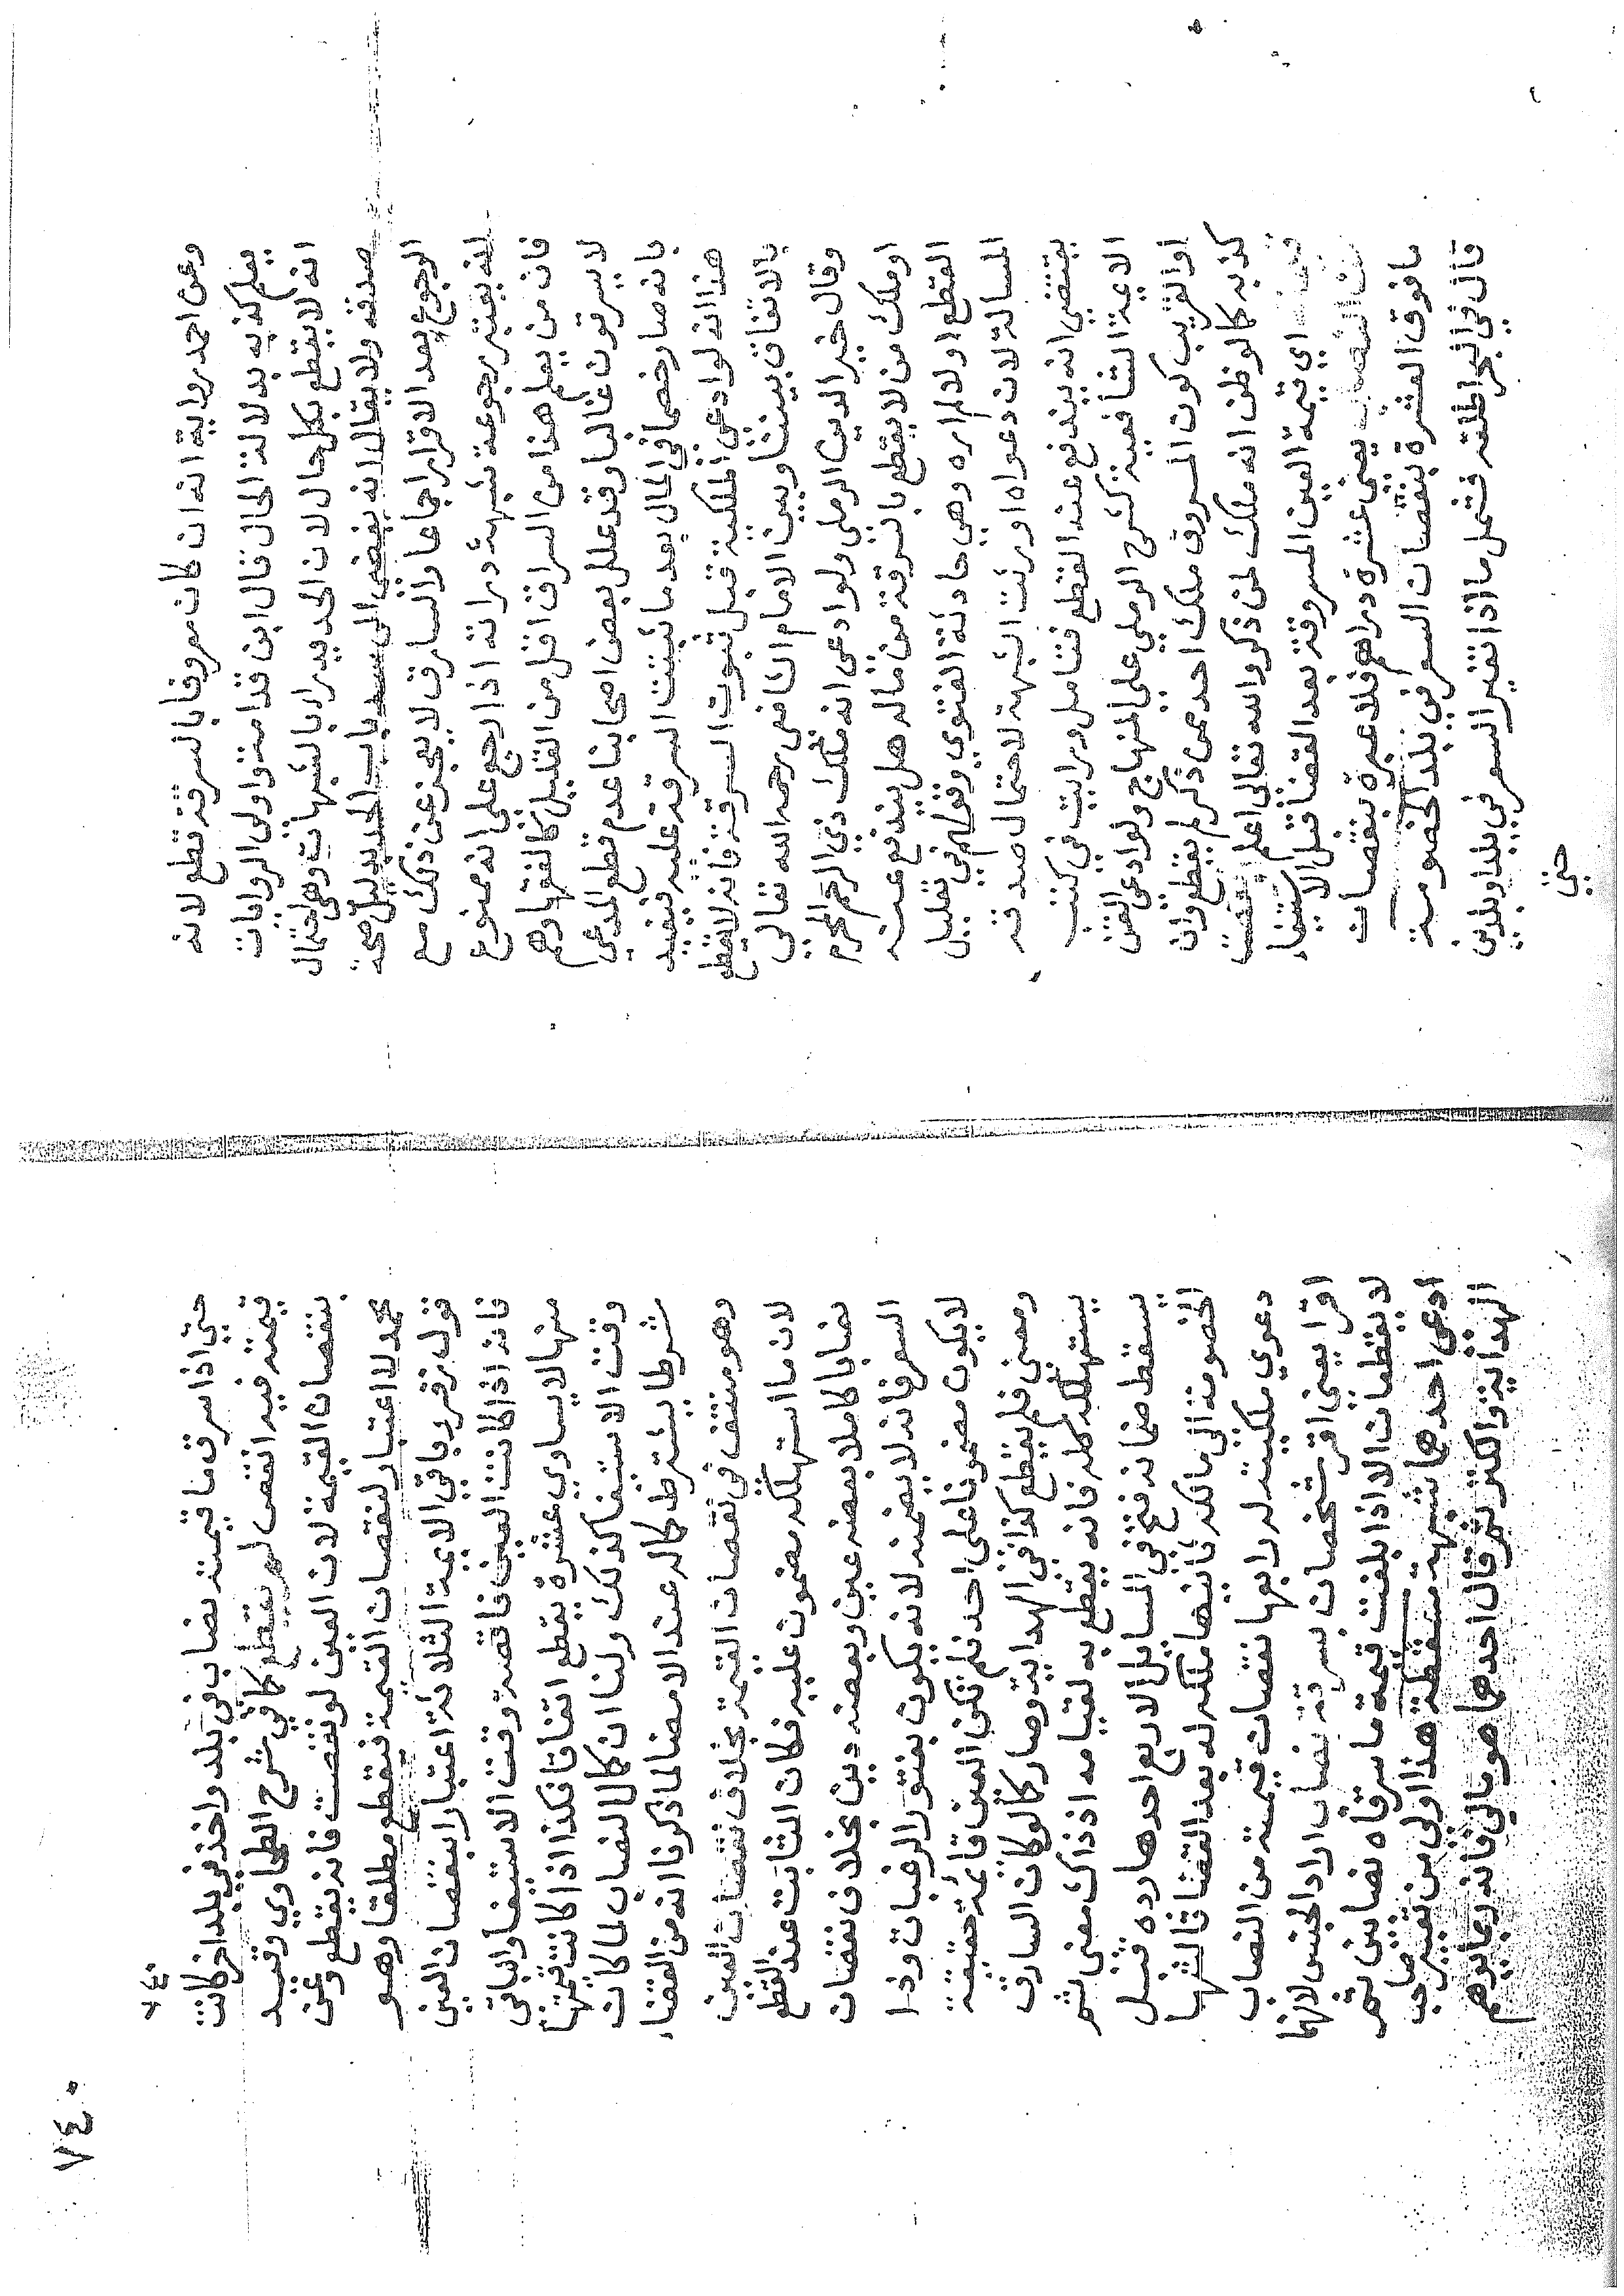 وعن احمد رواية انه ان كان معروفا بالسرقة قطع لانه
يعلم كذبه بدلالة الحال قال ابن قدامة واولى الروايات
انه لا يقطع بكل حال لان الحد يدرا بالشبهات وهي احتمال
صدقه ولا يقال انه يفضى الى سد باب الحد بدليل صحة
الرجوع بعد الاقرار اجماعا والسارق لا يعجز عن ذلك مع
انه يعتبر رجوعه شبهة دراته اذا رجع على انه ممنوع
فان من يعلم هذا من السراق اقل من القليل كالفقها وهم
لا يسرقون غالبا وقد علل بعض اصحابنا عدم قطع المدعى
بانه صار خصما في المال بعد ما ثبتت السرقة عليه فيفيد
هذا انه لو ادعى الملكية قبل ثبوت السرقة فانه لا يقطع
بالاتفاق بيننا وبين الامام الشافعى رحمه الله تعالى
وقال خير الدين الرملى ولو ادعى انه ملك ذي الرحم المحرم
او ملك من لا يقطع بالسرقة من ماله هل يندفع عنه
القطع اولا لم اره وهي حادثة الفتوى وقولهم في تعليل
المسالة لان دعواه اورثت الشبهة لاحتمال صدقه
يقتضي انه يندفع عنه القطع فتامل ورايت في كتب
الايمة الشافعية كشرح الرملي على المنهاج ولو ادعى القن
او القريب كون المسروق ملك احد ممن ذكر لم يقطع وان
كذبه كما لو ظن انه ملك لمن ذكروا لله تعالى اعلم
اي قيمة العين المسروقة بعد القضا قبل الاستيفاء
يعنى عشرة دراهم فلا عبرة بنقصان
ما فوق العشرة بنقصان السعر في بلد الخصومة
قال في البحر اطلقه فشمل ما اذا تغير السعر في بلد او بلدين
حتى
٧٤٠
حتى اذا سرق ما قيمته نصاب في بلد واخذ في بلد اخر كانت
قيمته فيه انقص لم يقطع كما في شرح الطحاوي وقيد
بنقصان القيمة لان العين لو نقصت فانه يقطع وعن
محمد لا اعتبار لنقصان القيمة فيقطع مطلقا وهو
قول زفر وباقي الايمة الثلاثة اعتبارا بنقصان العين
فانه اذا كانت العين ناقصة وقت الاستيفا والباقى
منها لا يساوي عشرة يقطع اتفاقا فكذا اذا كانت قيمتها
وقت الاستيفا كذلك ولنا ان كمال النصاب لما كان
شرطا يشترط كماله عند الامضا لما ذكرنا انه من القضاء
وهو منتف في نقصان القيمة بخلاف نقصان العين
لان ما استهلكه مضمون عليه فكان الثابت عند القطع
نصابا كاملا بعضه عين وبعضه دين بخلاف نقصان
السعر فانه لا يضمنه لانه يكون بفتور الرغبات وذا
لا يكون مضمونا على احد فلم تكن العين قائمة حقيقة
ومعنى فلم يقطع كذا في الهداية وصار كما لو كان السارق
يستهلكه كله فانه يقطع به لقيامه اذ ذاك معنى ثم
يسقط ضمانه فتح في المسايل الاربع احدها رده قبل
الخصومة الى مالكه ثانيها ملكه له بعد القضا ثالثها
دعوي ملكيته له رابعها نقصان قيمته من النصاب
اقرا يعنى اقر شخصان بسرقة نصاب اراد الجنس لانهما
لا يقطعان الا اذا بلغت قيمة ما سرقاه نصابين ثم
ادعى احدهما شبهة مسقطة هذا اولى من تعبير صاحب
الهداية والكنز ثم قال احدهما هو مالي فانه ربما يوهم
٧٤٠